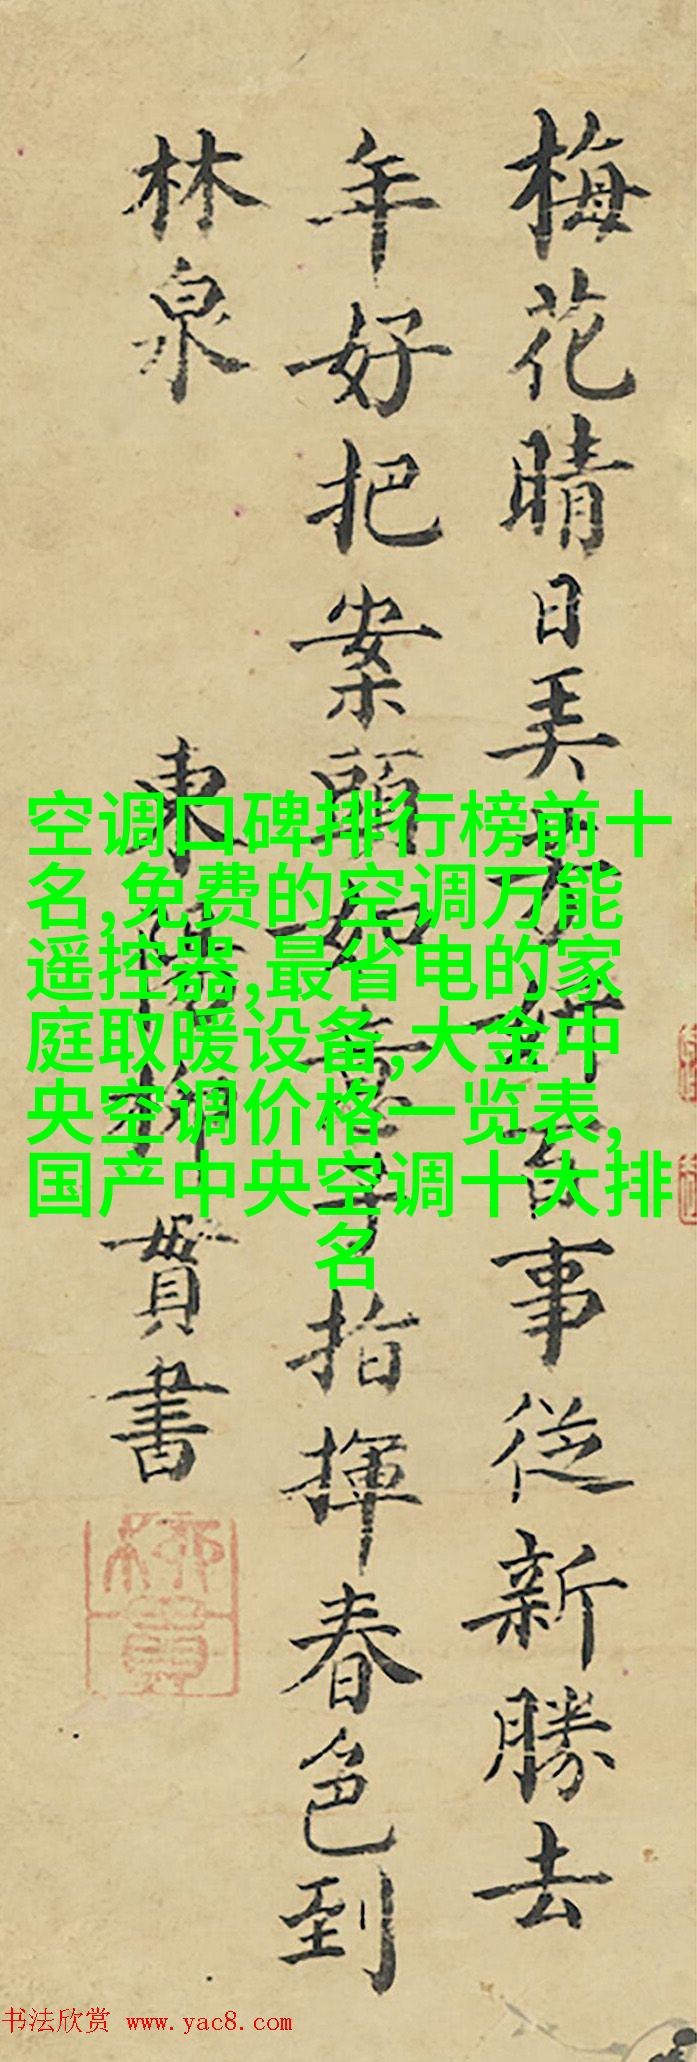 梅花晴日美妍百事從新勝去
年好把案頭如意子指揮春色到
林泉
東陽柳貫書
柳貫
空调口碑排行榜前十
名,免费的空调万能
遥控器,最省电的家
庭取暖设备,大金中
央空调价格一览表,
国产中央空调十大排
名
书法欣赏 www.yac8.com